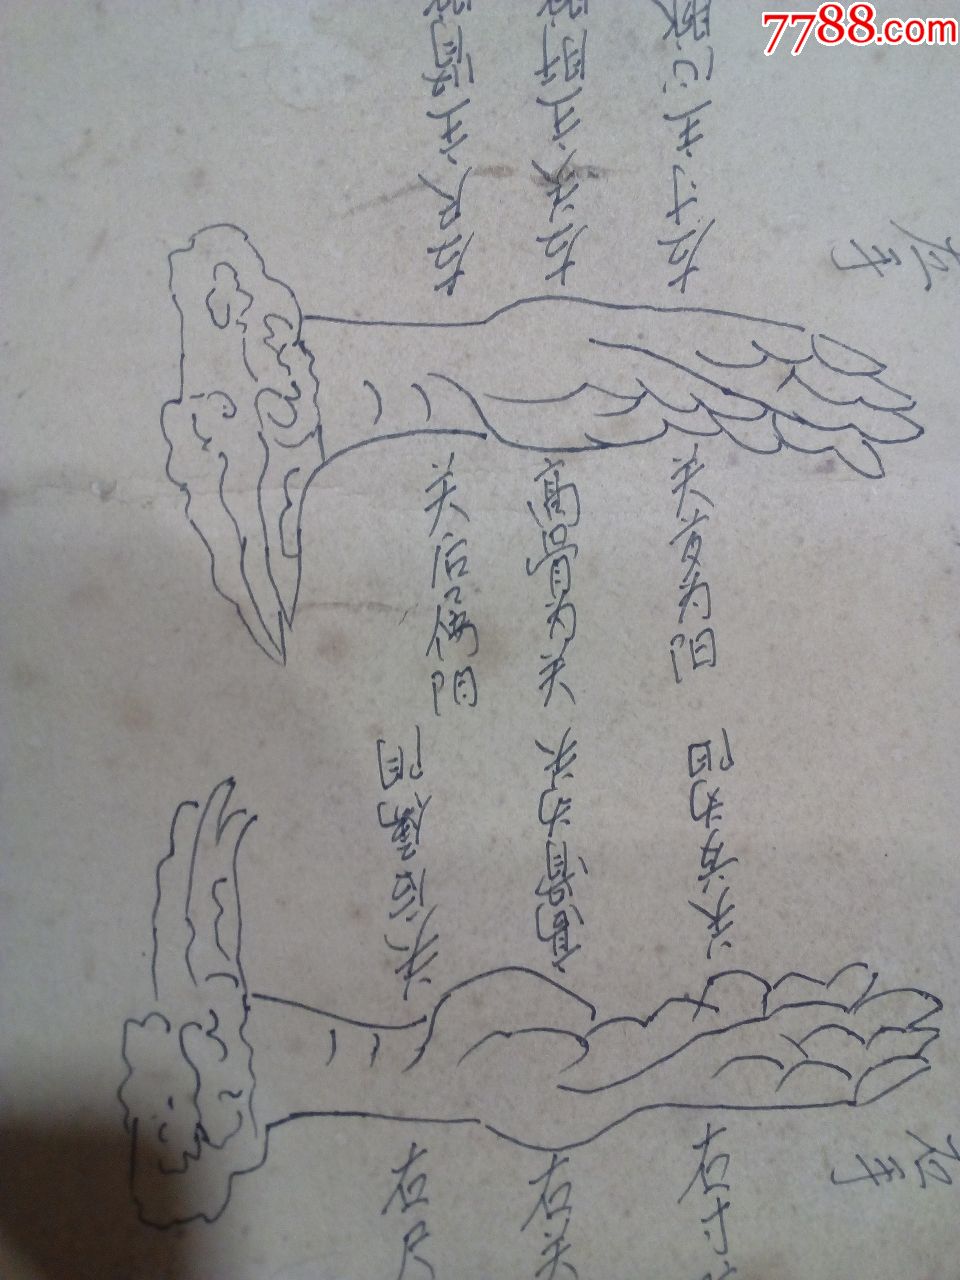 7788.com
左手
左寸主心
左关主肝
左尺主肾
关前为阳
高骨为关
关后阴
关前为阳
高骨为关
关后阴
右手
右寸
右关
右尺